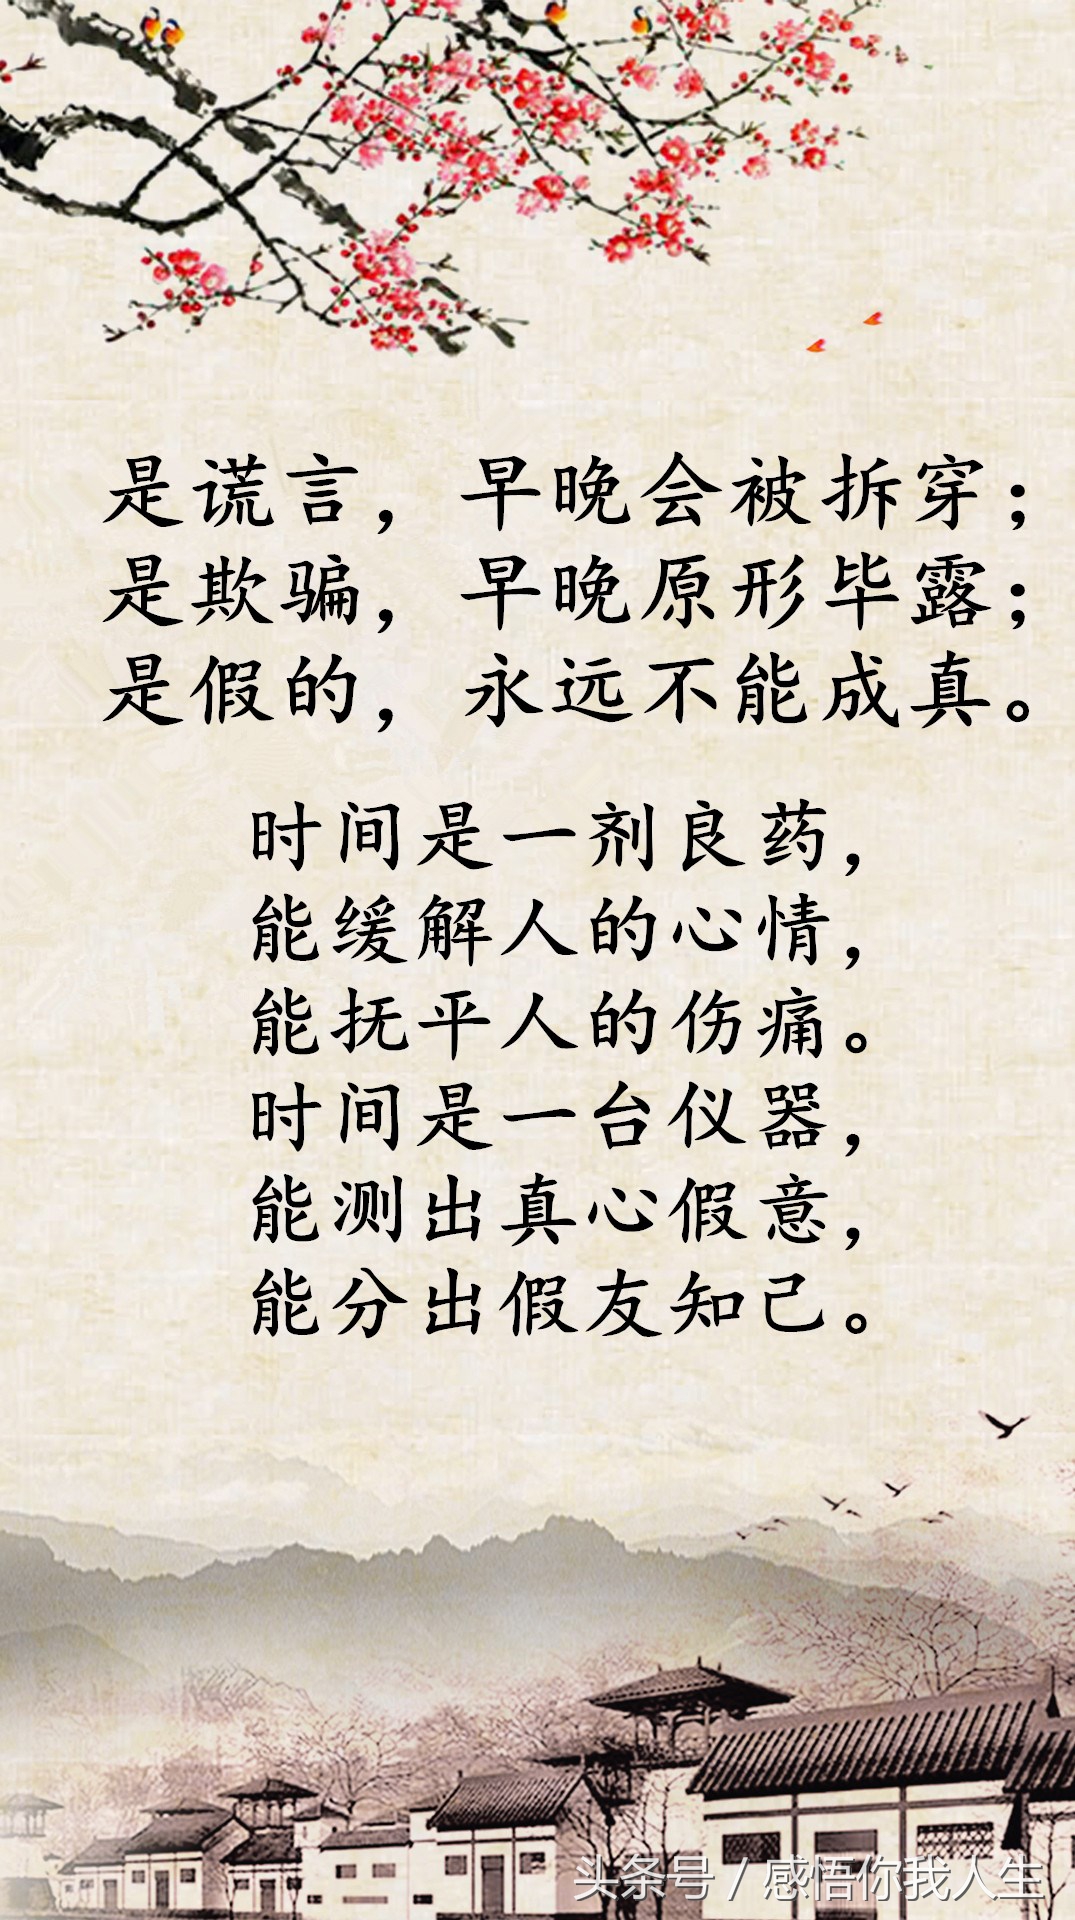 是谎言，早晚会被拆穿；
是欺骗，早晚原形毕露；
是假的，永远不能成真。
时间是一剂良药，
能缓解人的心情，
能抚平人的伤痛。
时间是一台仪器，
能测出真心假意，
能分出假友知己。
头条号 / 感悟你我人生